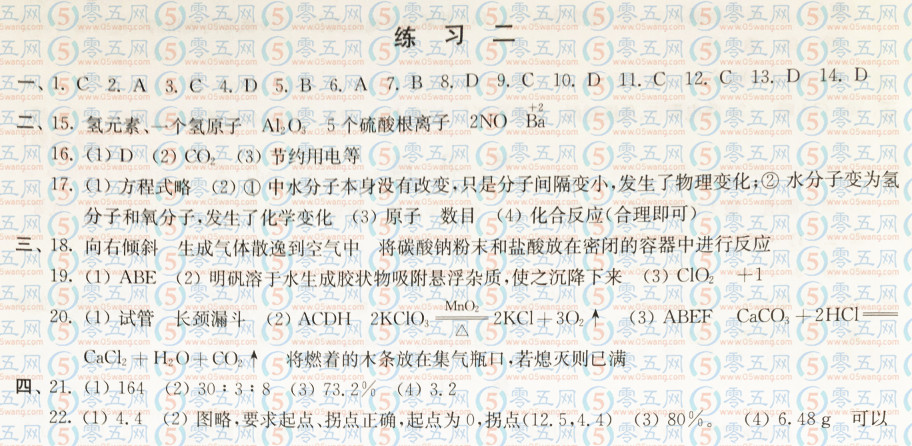 练 习 二
一、1. C 2. A 3. C 4. D 5. B 6. A 7. B 8. D 9. C 10. D 11. C 12. C 13. D 14. D
二、15. 氢元素、一个氢原子 Al₂O₃ 5个硫酸根离子 2NO B⁺²a
16. (1) D (2) CO₂ (3) 节约用电等
17. (1) 方程式略 (2) ① 中水分子本身没有改变,只是分子间隔变小,发生了物理变化;② 水分子变为氢
分子和氧分子,发生了化学变化 (3) 原子 数目 (4) 化合反应(合理即可)
三、18. 向右倾斜 生成气体散逸到空气中 将碳酸钠粉末和盐酸放在密闭的容器中进行反应
19. (1) ABE (2) 明矾溶于水生成胶状物吸附悬浮杂质,使之沉降下来 (3) ClO₂ +1
20. (1) 试管 长颈漏斗 (2) ACDH 2KClO₃ =MnO₂/△= 2KCl+3O₂↑ (3) ABEF CaCO₃+2HCl══
CaCl₂+H₂O+CO₂↑ 将燃着的木条放在集气瓶口,若熄灭则已满
四、21. (1) 164 (2) 30∶3∶8 (3) 73.2% (4) 3.2
22. (1) 4.4 (2) 图略,要求起点、拐点正确,起点为0,拐点(12.5,4.4) (3) 80%。 (4) 6.48 g 可以